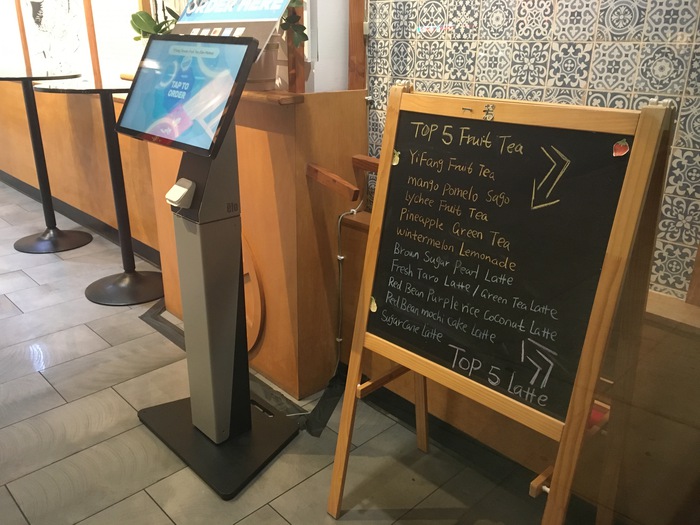 ORDER HERE
TAP TO
ORDER
Elo
TOP 5 Fruit Tea
YiFang Fruit Tea
mango pomelo Sago
Lychee Fruit Tea
Pineapple Green Tea
wintermelon Lemonade
Brown Sugar Pearl Latte
Fresh Taro Latte / Green Tea Latte
Red Bean Purple rice Coconut Latte
Red Bean mochi cake Latte
Sugarcane latte
TOP 5 Latte